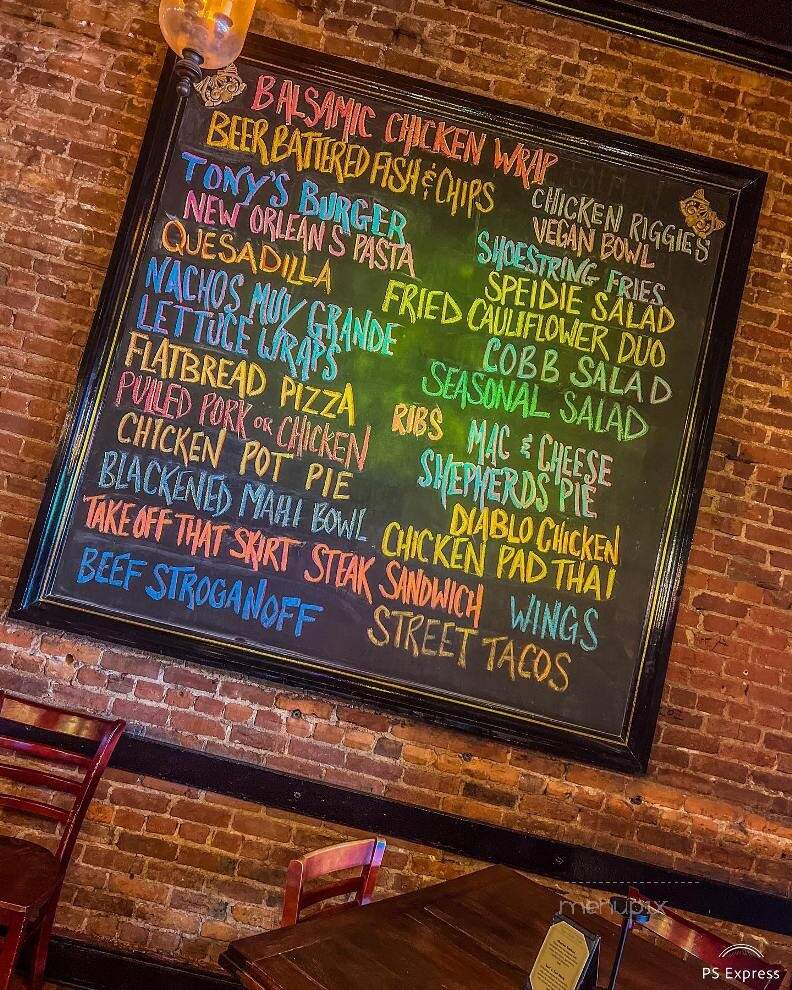 BALSAMIC CHICKEN WRAP
BEER BATTERED FISH & CHIPS
TONY'S BURGER
NEW ORLEAN'S PASTA
QUESADILLA
NACHOS MUY GRANDE
LETTUCE WRAPS
FLATBREAD PIZZA
PULLED PORK OR CHICKEN
CHICKEN POT PIE
BLACKENED MAHI BOWL
TAKE OFF THAT SKIRT STEAK SANDWICH
BEEF STROGANOFF
CHICKEN RIGGIES
VEGAN BOWL
SHOESTRING FRIES
SPEIDIE SALAD
FRIED CAULIFLOWER DUO
COBB SALAD
SEASONAL SALAD
RIBS
MAC & CHEESE
SHEPHERDS PIE
DIABLO CHICKEN
CHICKEN PAD THAI
WINGS
STREET TACOS
menupix
PS Express